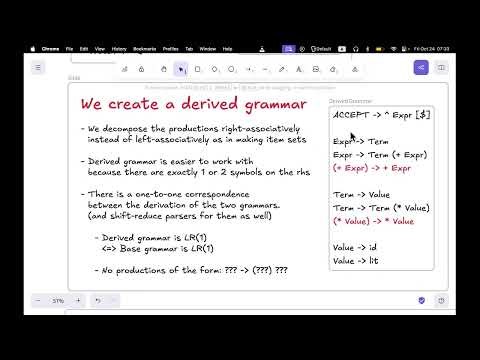 Chrome File Edit View History Bookmarks Profiles Tab Window Help
Default
Fri Oct 24 07:33
Slide
We create a derived grammar
- We decompose the productions right-associatively
instead of left-associatively as in making item sets
- Derived grammar is easier to work with
because there are exactly 1 or 2 symbols on the rhs
- There is a one-to-one correspondence
between the derivation of the two grammars.
(and shift-reduce parsers for them as well)
- Derived grammar is LR(1)
<=> Base grammar is LR(1)
- No productions of the form: ??? -> (???) ???
Derived Grammar
ACCEPT -> ^ Expr [$]
Expr -> Term
Expr -> Term (+ Expr)
(+ Expr) -> + Expr
Term -> Value
Term -> Term (* Value)
(* Value) -> * Value
Value -> id
Value -> lit
57%